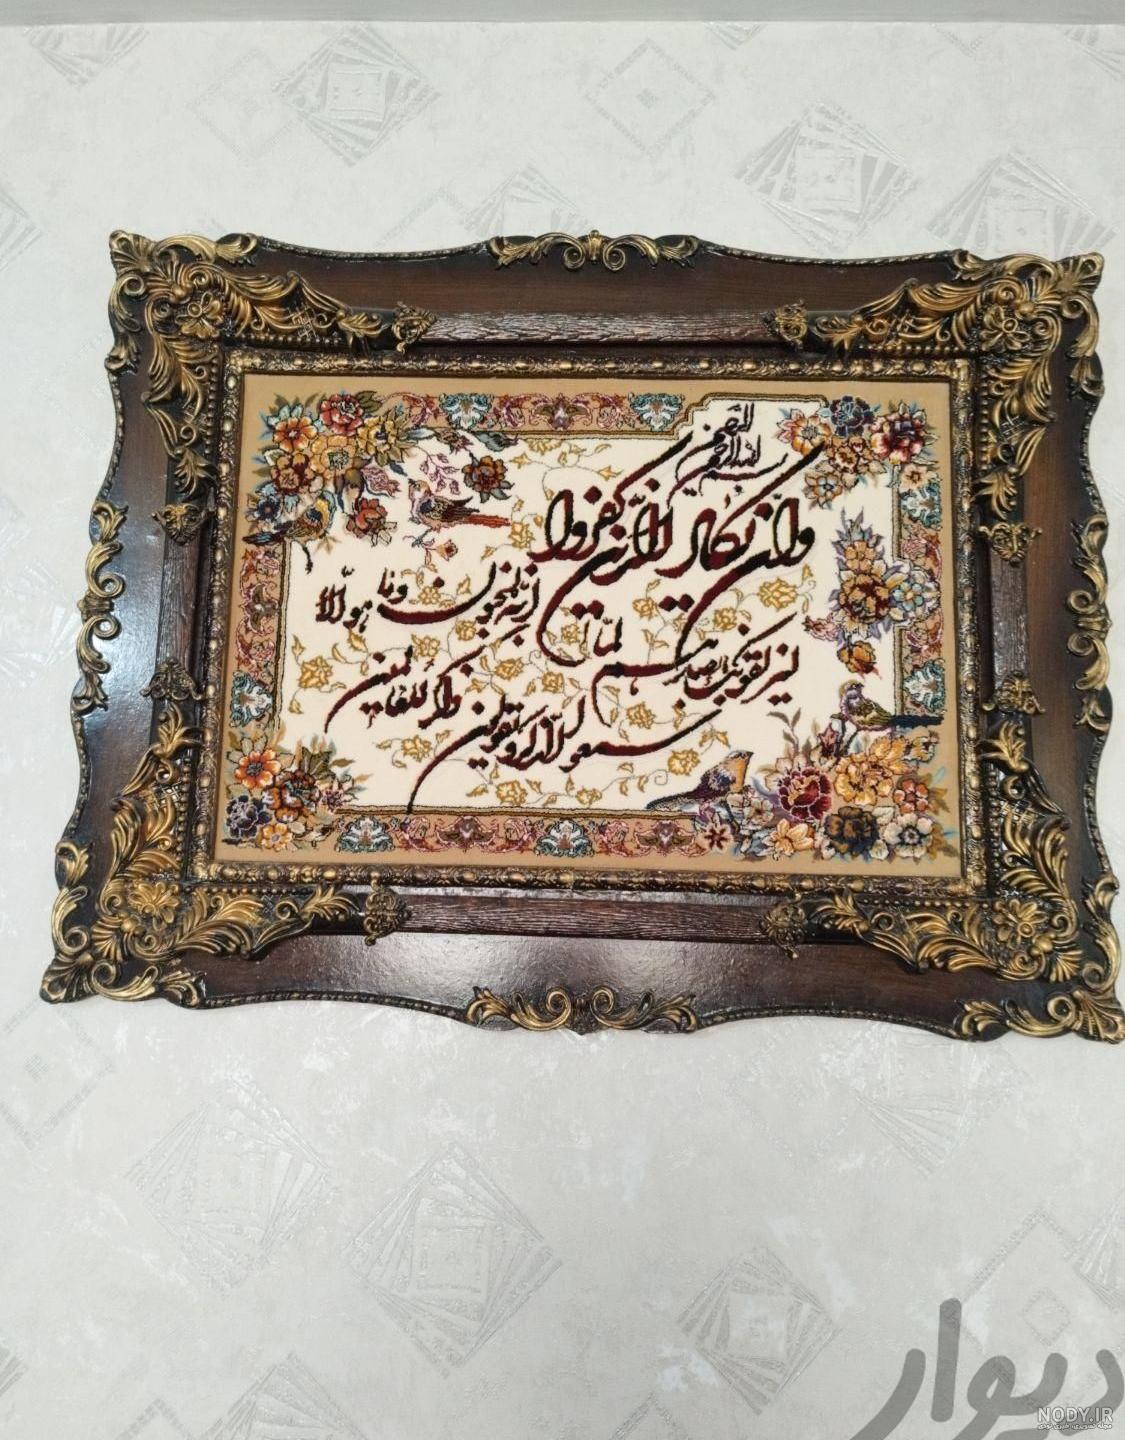 بسم الله الرحمن الرحیم
وان یکاد الذین کفروا
لیزلقونک بابصارهم لما
سمعوا الذکر و یقولون
انه لمجنون وما هو الا
ذکر للعالمین
دیوار
NODY.IR